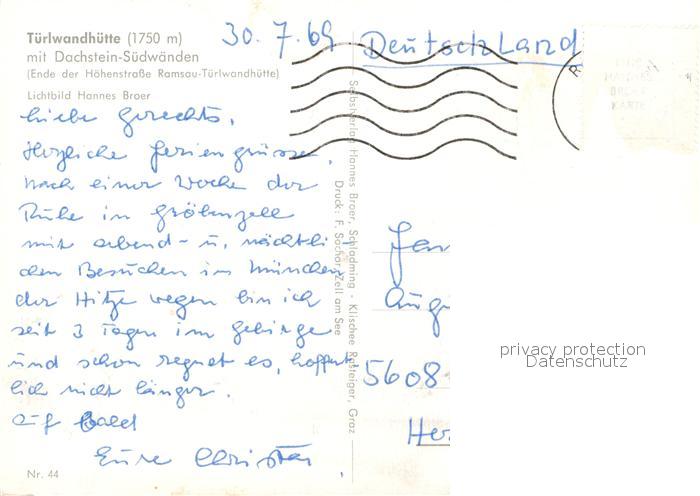 Türlwandhütte (1750 m)
mit Dachstein-Südwänden
(Ende der Höhenstraße Ramsau-Türlwandhütte)
Lichtbild Hannes Broer
30. 7. 69
Deutschland
Liebe
Herzliche Feriengrüsse,
nach einer Woche der
Ruhe in Gröbenzell
mit abend- u. nächtli
chen Besuchen in München
der Hitze wegen bin ich
seit 3 Tagen im Gebirge
und schon regnet es, hoffent-
lich nicht länger.
Auf bald
Eure
Nr. 44
Selbstverlag Hannes Broer, Schladming - Klischee Rasteiger, Graz
Druck: F. Sochor, Zell am See
5608
privacy protection
Datenschutz